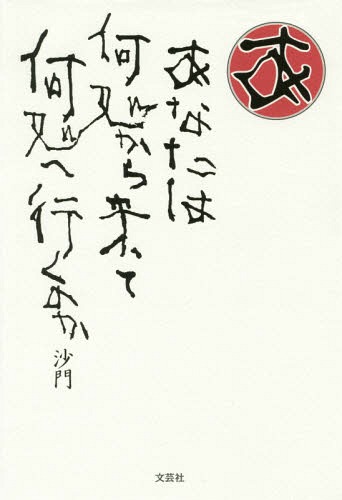 あなたは
何処から来て
何処へ行くのか
沙門
文芸社